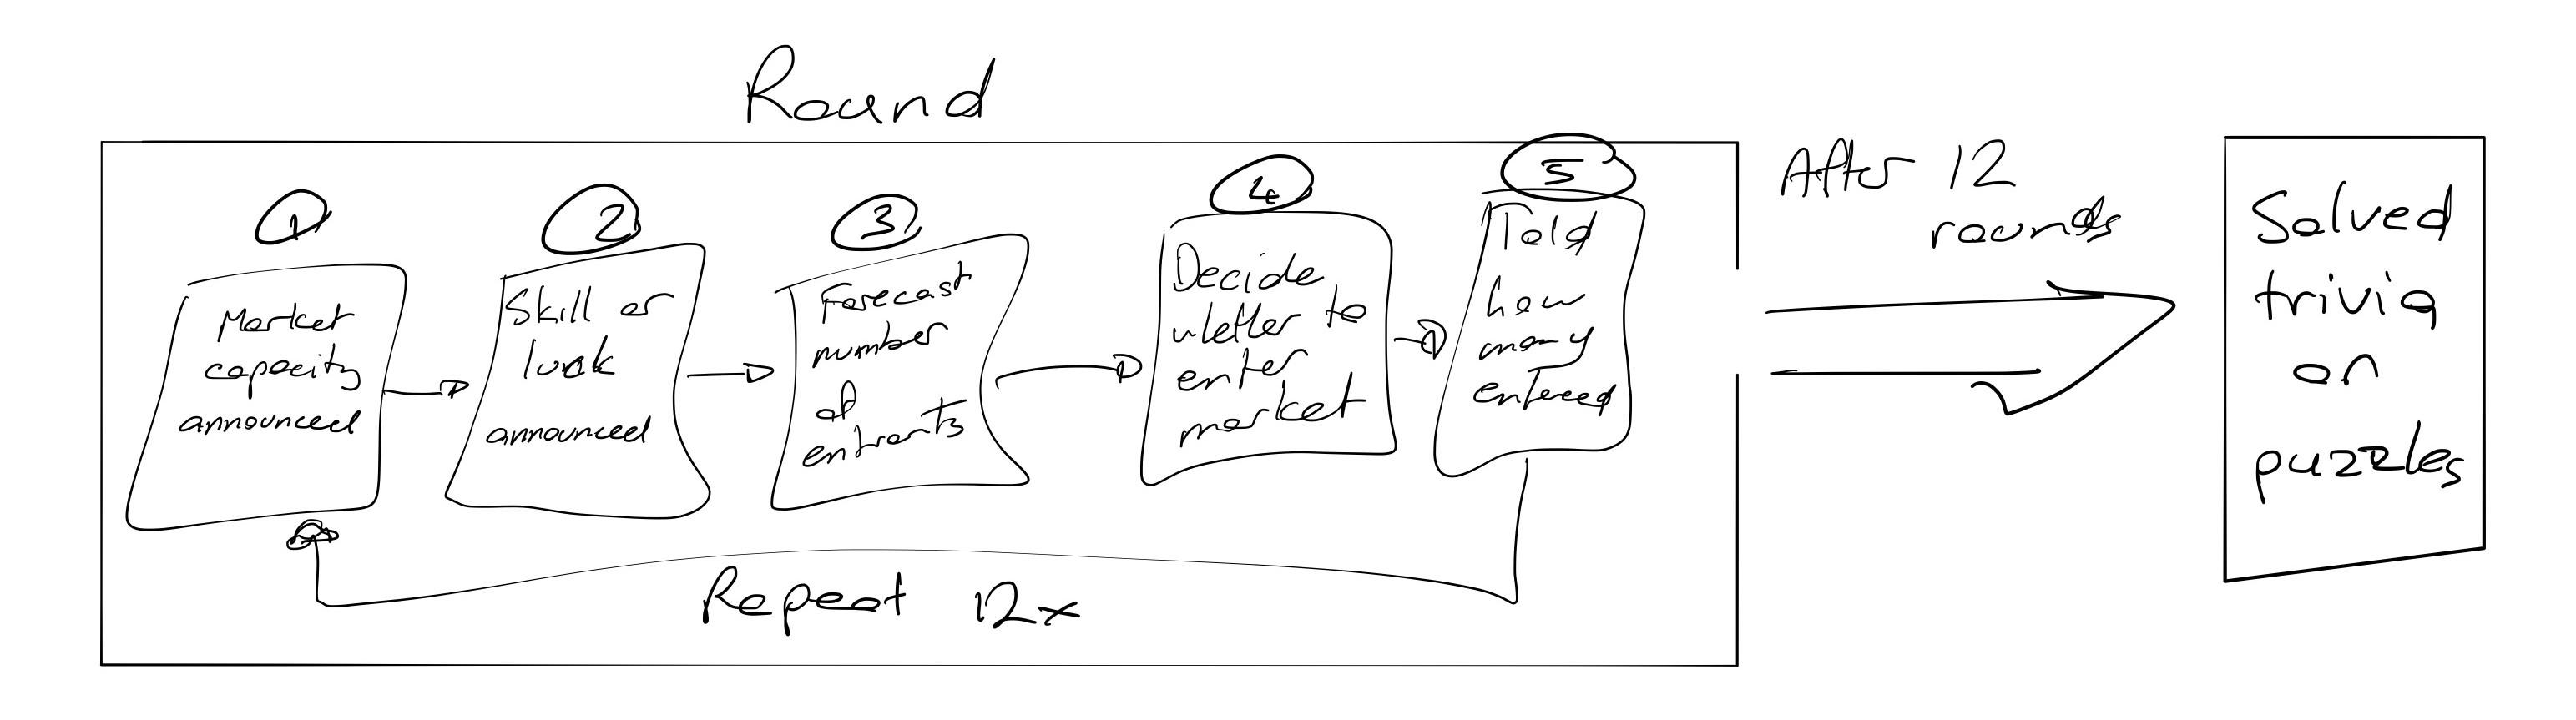 Round
1
Market
capacity
announced
2
Skill or
luck
announced
3
Forecast
number
of
entrants
4
Decide
whether to
enter
market
5
Told
how
many
entered
Repeat 12x
After 12
rounds
Solved
trivia
or
puzzles